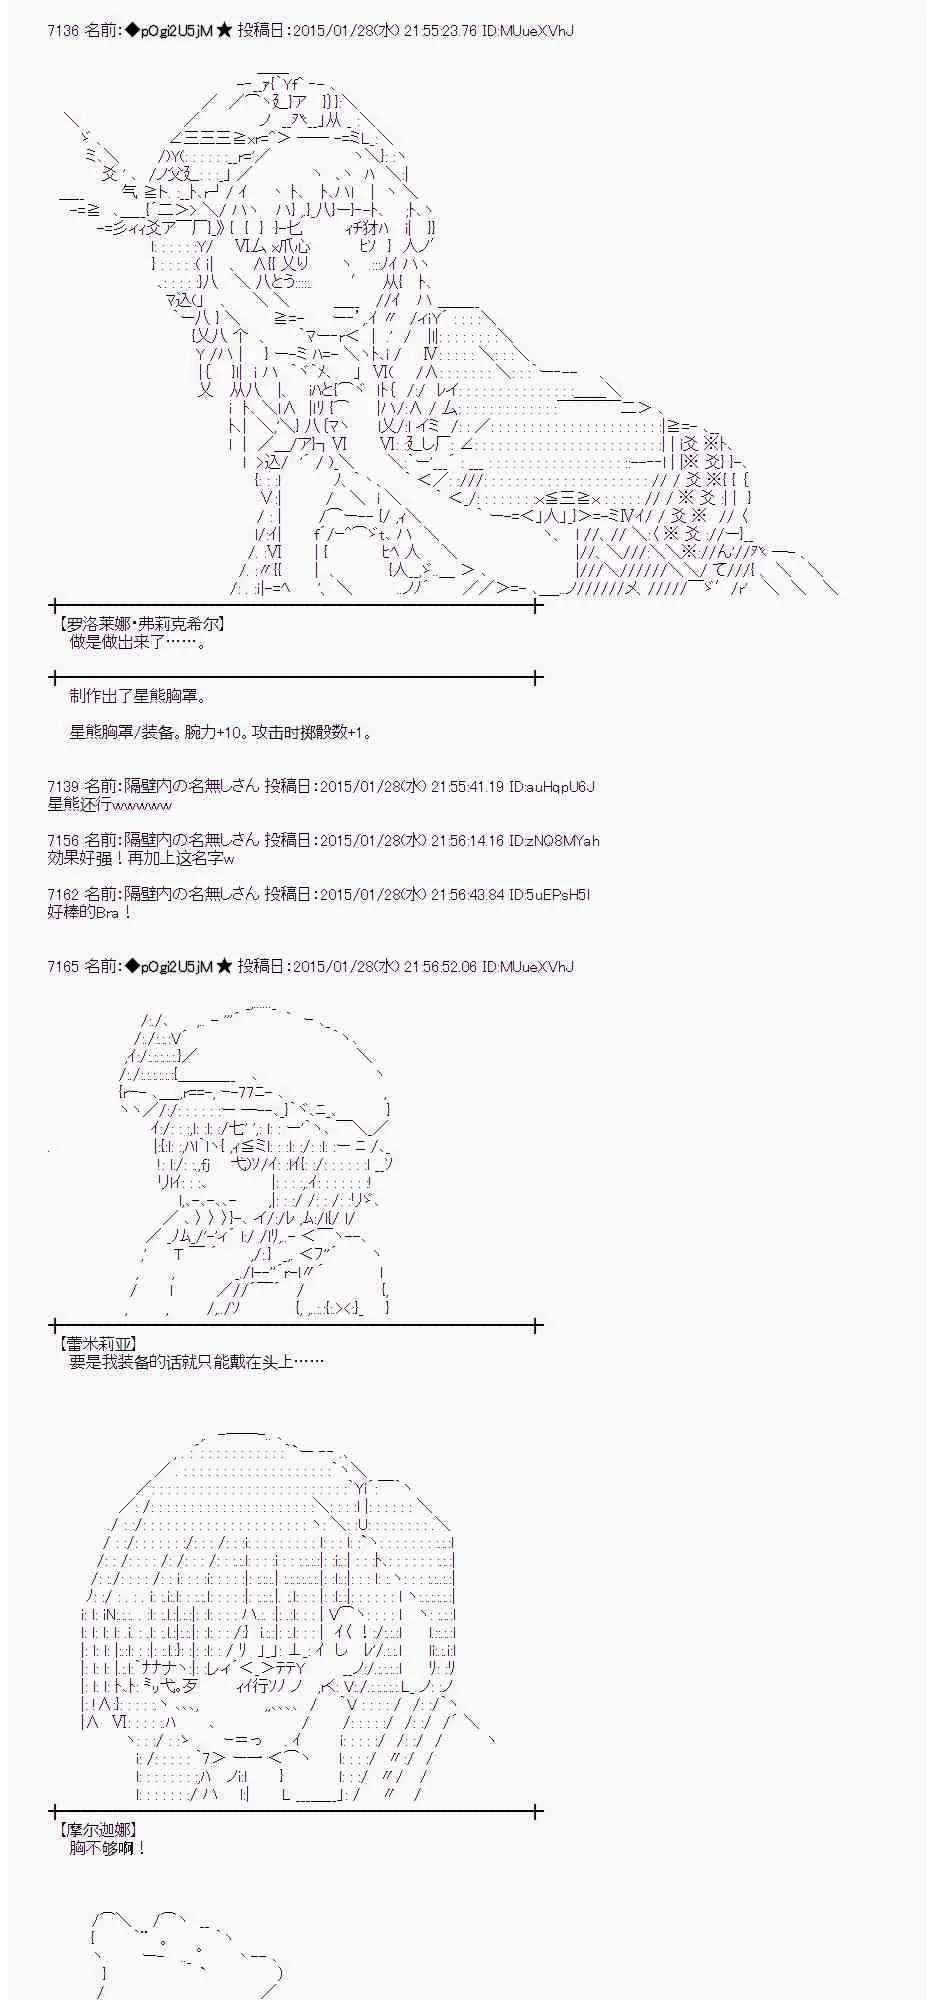 7136 名前：◆pOgi2U5jM ★ 投稿日：2015/01/28(水) 21:55:23.76 ID:MUueXVhJ
【罗洛莱娜・弗莉克希尔】
做是做出来了……。
制作出了星熊胸罩。
星熊胸罩/装备。腕力+10。攻击时掷骰数+1。
7139 名前：隔壁内の名無しさん 投稿日：2015/01/28(水) 21:55:41.19 ID:auHqpU6J
星熊还行wwwww
7156 名前：隔壁内の名無しさん 投稿日：2015/01/28(水) 21:56:14.16 ID:zNQ8MYah
效果好强！再加上这名字w
7162 名前：隔壁内の名無しさん 投稿日：2015/01/28(水) 21:56:43.84 ID:5uEPsH5I
好棒的Bra！
7165 名前：◆pOgi2U5jM ★ 投稿日：2015/01/28(水) 21:56:52.06 ID:MUueXVhJ
【蕾米莉亚】
要是我装备的话就只能戴在头上……
【摩尔迦娜】
胸不够啊！